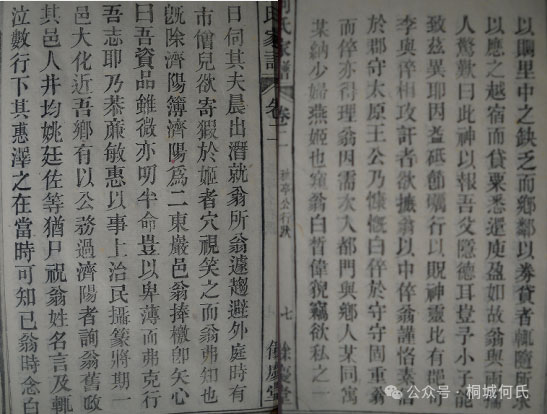 以賙里中之缺乏而鄉鄰以券貸者輒隨所求
以應之越宿而貸粟悉還庾盈如故翁與兩
人驚歎曰此神以報吾父隱德耳豈予小子能
致茲異耶因益砥節礪行以貺神靈比有郡
李與倅相攻訐者欲攈翁以中倅翁謹恪素
於郡守太原王公乃慷慨白倅於守守固重翁
而倅亦得理翁因需次入都門與鄉人某同寓
某納少婦燕姬也窺翁白皙偉猊竊欲私之一
何氏家譜 卷二 亭公行狀 七 餘慶堂
日伺其夫晨出潛就翁所翁遽趨避外庭時有
市僧兒欲寄豭於姬者穴視笑之而翁弗知也
既除濟陽簿濟陽為二東巖邑翁捧檄卽矢心
曰吾資品雖微亦叨半命豈以卑薄而弗克行
吾志耶乃恭廉敏惠以事上治民攝篆將期一
邑大化近吾鄉有以公務過濟陽者詢翁舊政
其邑人井均姚廷佐等猶尸祝翁姓名言及輒
泣數行下其惠澤之在當時可知已翁時念白
氏家譜 卷二 餘慶堂
公众号 · 桐城何氏